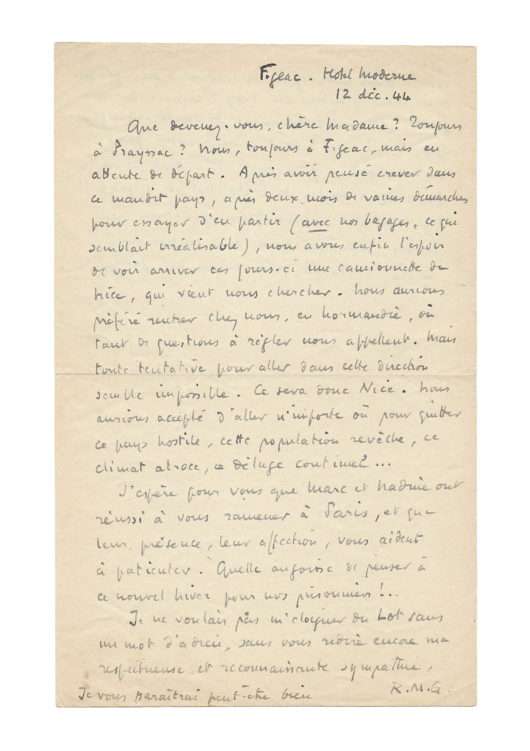 Figeac. Hotel Moderne
12 déc. 44
Que devenez-vous, chère Madame? Toujours
à Prayssac? Nous, toujours à Figeac, mais en
attente de départ. Après avoir pensé crever dans
ce maudit pays, après deux mois de vaines démarches
pour essayer d'en partir (avec nos bagages, ce qui
semblait irréalisable), nous avons enfin l'espoir
de voir arriver ces jours-ci une camionnette de
Nice, qui vient nous chercher. Nous aurions
préféré rentrer chez nous, en Normandie, où
tant de questions à régler nous appellent. Mais
toute tentative pour aller dans cette direction
semble impossible. Ce sera donc Nice. Nous
aurions accepté d'aller n'importe où pour quitter
ce pays hostile, cette population revêche, ce
climat atroce, ce déluge continuel...
J'espère pour vous que Marc et Nadine ont
réussi à vous ramener à Paris, et que
leur présence, leur affection, vous aident
à patienter. Quelle angoisse de penser à
ce nouvel hiver pour nos prisonniers!..
Je ne voulais pas m'éloigner du Lot sans
un mot d'adieu, sans vous redire encore ma
respectueuse et reconnaissante sympathie.
R.M.G.
Je vous paraîtrai peut-être bien